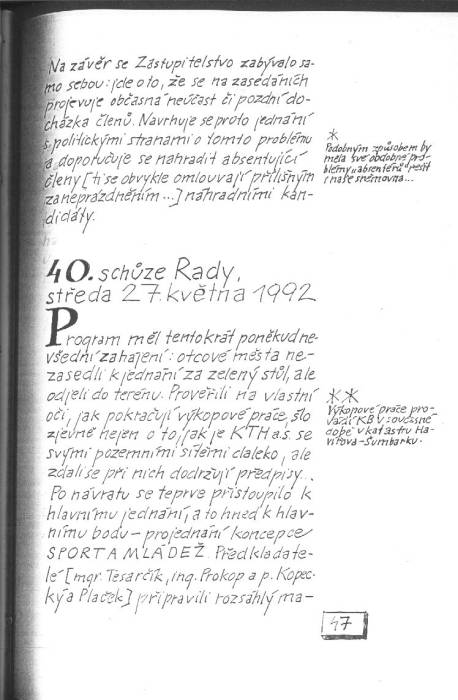 Na závěr se Zastupitelstvo zabývalo sa-
mo sebou: jde o to, že se na zasedáních
projevuje občasná neúčast či pozdní do-
cházka členů. Navrhuje se proto jednání
s politickými stranami o tomto problému
a doporučuje se nahradit absentující
členy [ti se obvykle omlouvají přílišným
zaneprázdněním...] náhradními kan-
didáty.
*
Podobným způsobem by
měla své obdobné pro-
blémy „absentérů“ řešit
i naše sněmovna...
40. schůze Rady,
středa 27. května 1992
Program měl tentokrát poněkud ne-
všední zahájení: otcové města ne-
zasedli k jednání za zelený stůl, ale
odjeli do terénu. Prověřili na vlastní
oči, jak pokračují výkopové práce, šlo
zjevně nejen o to, jak je KTH a.s. se
svými pozemními sítěmi daleko, ale
zdali se při nich dodržují předpisy...
Po návratu se teprve přistoupilo k
hlavnímu jednání, a to hned k hlav-
nímu bodu – projednání koncepce
SPORT A MLÁDEŽ. Předkladate-
lé [mgr. Tesarčík, ing. Prokop a p. Kopec-
ký a Plaček] připravili rozsáhlý ma-
**
Výkopové práce pro-
vádí KB v současné
době v katastru Ha-
vířova-Šumbarku.
47